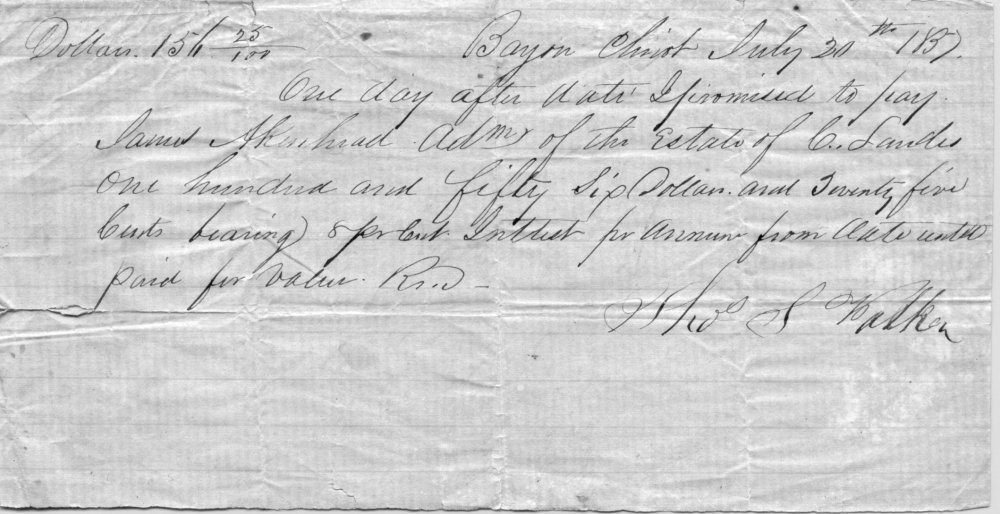 Dollars. 156 25/100 Bayou Chicot July 20th 1857.
One day after date I promised to pay
James Akenhead Admr of the Estate of C. Landes
one hundred and fifty Six Dollars and Twenty five
Cents bearing 8 pr Cent Interest pr Annum from date untill
paid for value. Rc.d –
Thos S Walker